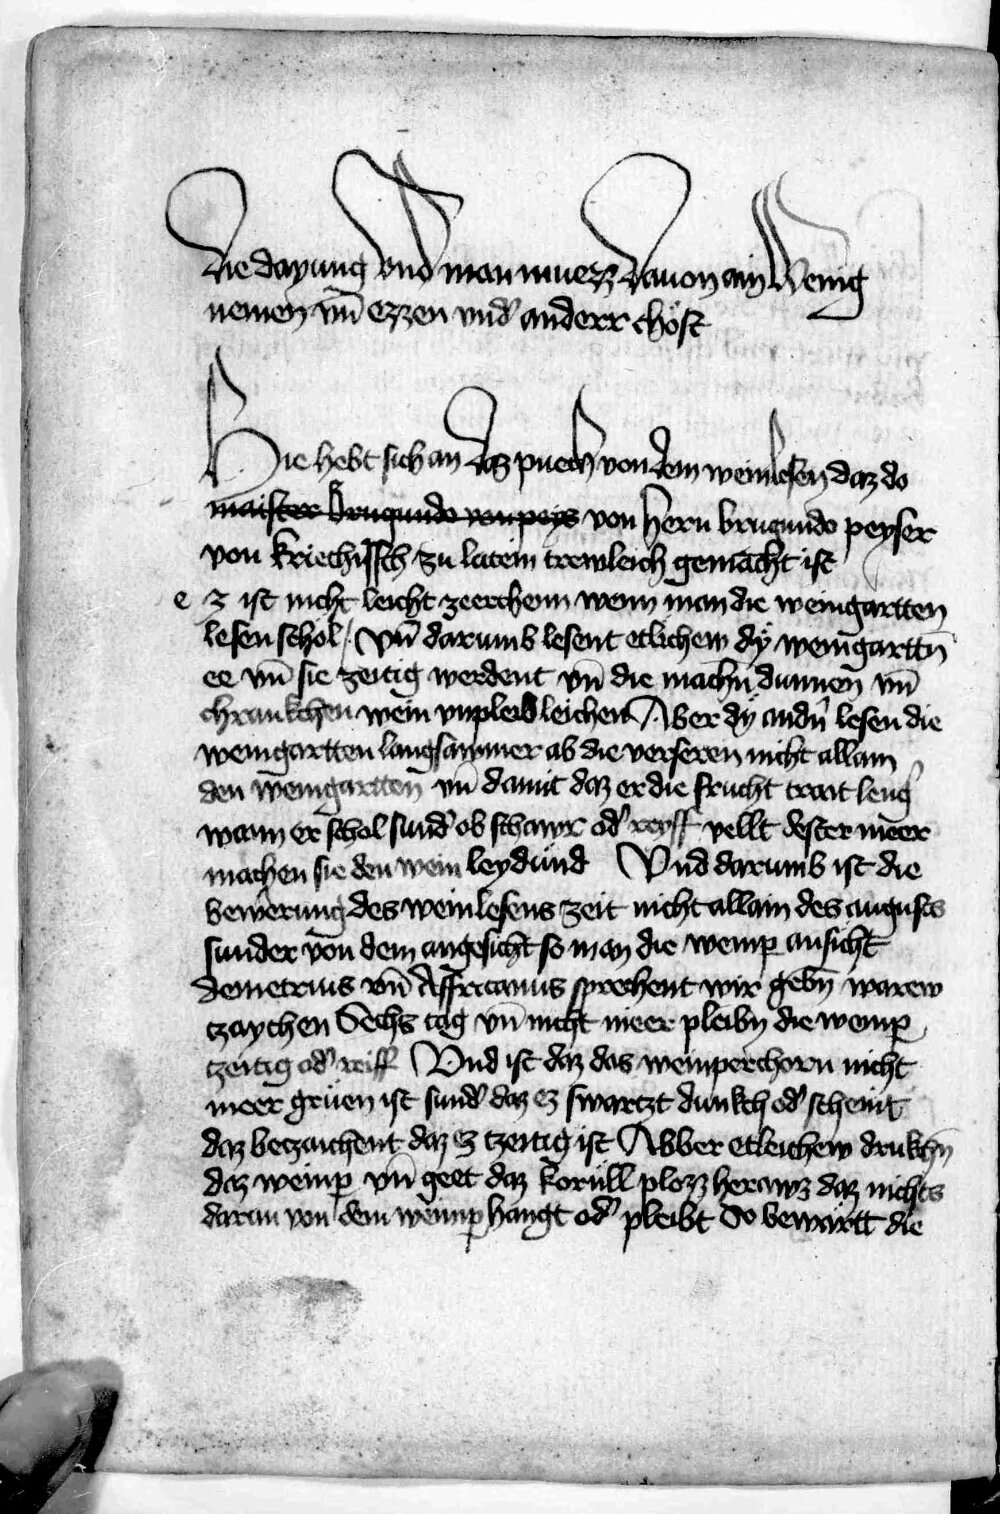 die dayung vnd man muezz dauon ain Wenig
nemen vn̄ ezzen vnd' anderr chöst
Hie hebt sich an daz puech von dem weinlesen daz do
maister Brugundo von peys von Hern brugundo peyser
von kriechissch zu latein trewleich gemacht ist
e z ist nicht leicht zeerchenn wenn man die weingartten
lesen schol / Vn̄ darumb lesent etlichew dÿ weingarttn̄
ee vn̄ sie zeitig werdent vn̄ die machn̄ dunnen vn̄
chrankchen wein vnpleibleichen Aber dÿ andn̄ lesen die
weingartten langsammer ab die verseren nicht allain
den weingartten vn̄ damit daz er die frucht trait leng'
wann er schol sund' ob schawr od' reyff vellt dester meer
machen sie den wein leydund Vnd darumb ist die
bewerung des weinlesens zeit nicht allain des augusts
sunder von dem angesicht so man die weinp ansicht
demetrius vn̄ Affricanus sprechent wir gebn̄ warew
tzaychen Sechs tag vn̄ nicht meer pleibn̄ die weinp
tzeitig od' reiff Vnd ist daz das weinperchorn nicht
meer grüen ist sund' daz ez swartzt dunkch od' scheint
daz betzaichent daz ez tzeitig ist Abber etleichew drukchn̄
daz weinp vn̄ geet daz körnll plozz herawz daz nichts
daran von dem weinnp hangt od' pleibt So bewärtt die